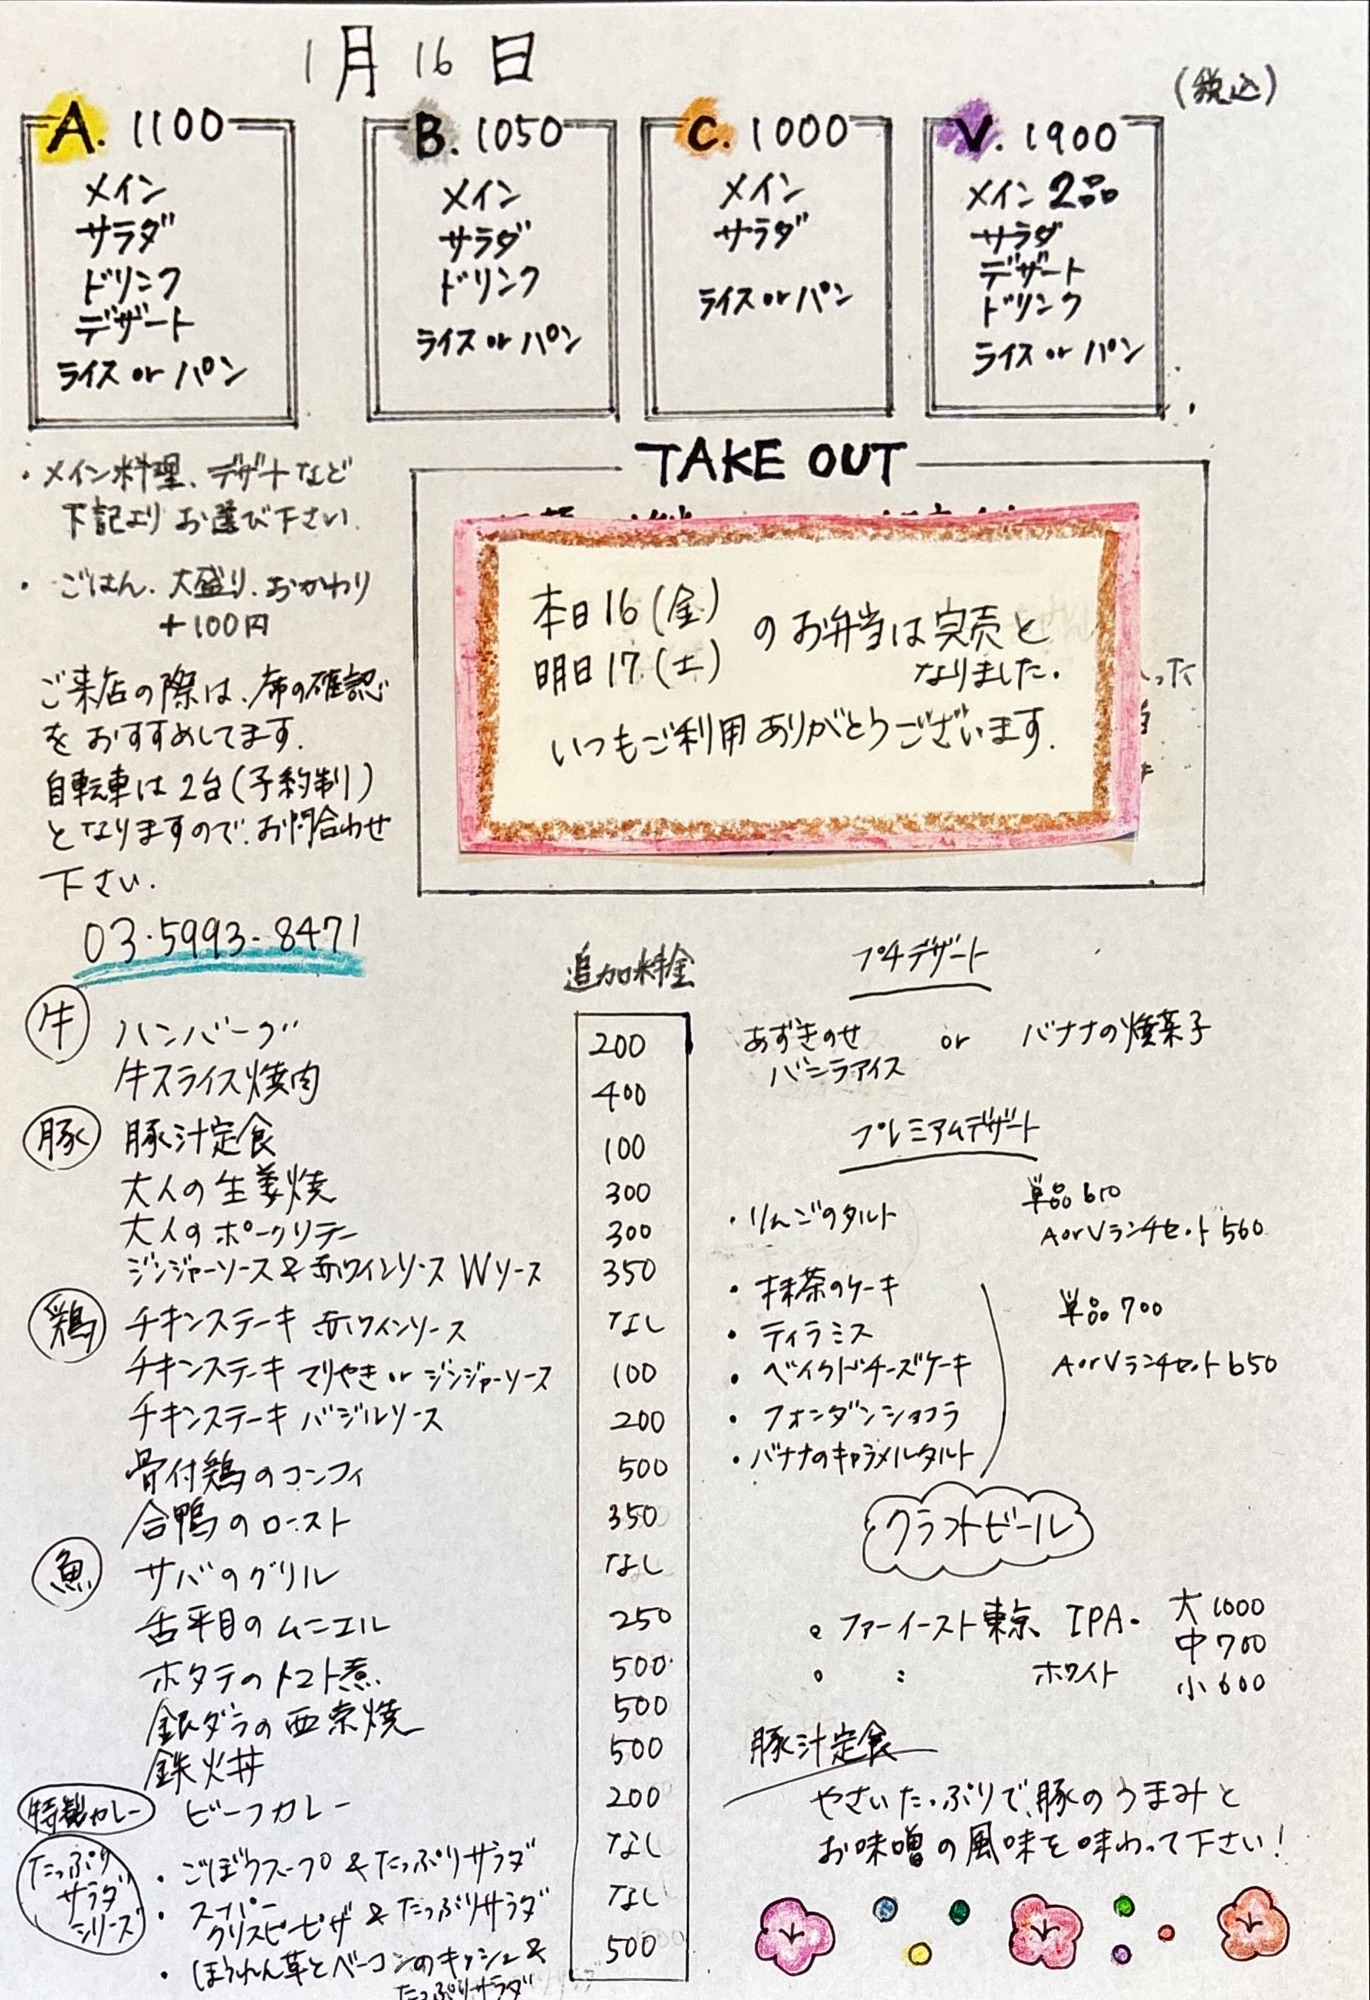 1月16日
(税込)
A. 1100
メイン
サラダ
ドリンク
デザート
ライス or パン
B. 1050
メイン
サラダ
ドリンク
ライス or パン
C. 1000
メイン
サラダ
ライス or パン
V. 1900
メイン 2品
サラダ
デザート
ドリンク
ライス or パン
・メイン料理、デザートなど
下記より お選び下さい.
・ごはん. 大盛り. おかわり
+100円
ご来店の際は、席の確認
をおすすめしてます.
自転車は2台(予約制)
となりますので、お問合わせ
下さい.
03-5993-8471
TAKE OUT
本日16(金)
明日17(土)
のお弁当は完売と
なりました.
いつもご利用ありがとうございます.
追加料金
牛 ハンバーグ 200
牛スライス焼肉 400
豚 豚汁定食 100
大人の生姜焼 300
大人のポークソテー 300
ジンジャーソース&赤ワインソース Wソース 350
鶏 チキンステーキ 赤ワインソース なし
チキンステーキ テリやき or ジンジャーソース 100
チキンステーキ バジルソース 200
骨付鶏のコンフィ 500
合鴨のロースト 350
魚 サバのグリル なし
舌平目のムニエル 250
ホタテのトマト煮 500
銀ダラの西京焼 500
鉄火丼 500
特製カレー ビーフカレー 200
たっぷり
サラダ
シリーズ
・ごぼうスープ & たっぷりサラダ なし
・スーパー
クリスピーピザ & たっぷりサラダ なし
・ほうれん草とベーコンのキッシュ& 500
たっぷりサラダ
プチデザート
あずきのせ
バニラアイス
or バナナの焼菓子
プレミアムデザート
・りんごのタルト
単品 610
A or V ランチセット 560
・抹茶のケーキ
・ティラミス
・ベイクドチーズケーキ
・フォンダンショコラ
・バナナのキャラメルタルト
単品 700
A or V ランチセット 650
クラフトビール
・ファーイースト東京 IPA.
・ 〃 ホワイト
大 1000
中 700
小 600
豚汁定食
やさいたっぷりで、豚のうまみと
お味噌の風味を味わって下さい!